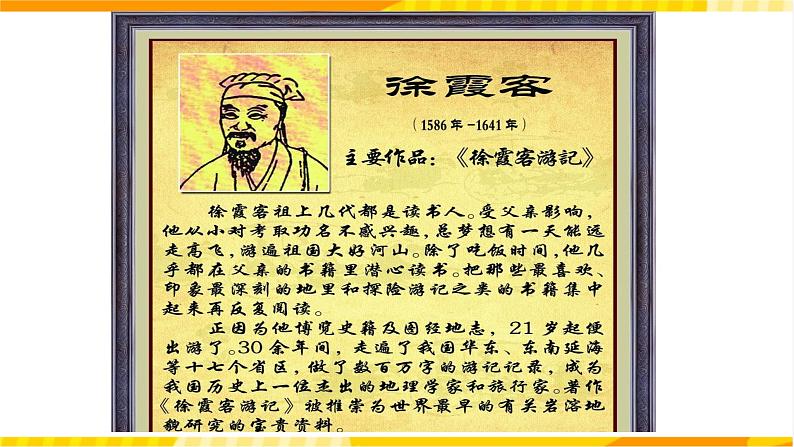 徐霞客
（1586年-1641年）
主要作品：《徐霞客游記》
徐霞客祖上几代都是读书人。受父亲影响，
他从小对考取功名不感兴趣，总梦想有一天能远
走高飞，游遍祖国大好河山。除了吃饭时间，他几
乎都在父亲的书籍里潜心读书。把那些最喜欢、
印象最深刻的地里和探险游记之类的书籍集中
起来再反复阅读。
正因为他博览史籍及图经地志，21岁起便
出游了。30余年间，走遍了我国华东、东南延海
等十七个省区，做了数百万字的游记记录，成为
我国历史上一位杰出的地理学家和旅行家。著作
《徐霞客游记》被推崇为世界最早的有关岩溶地
貌研究的宝贵资料。